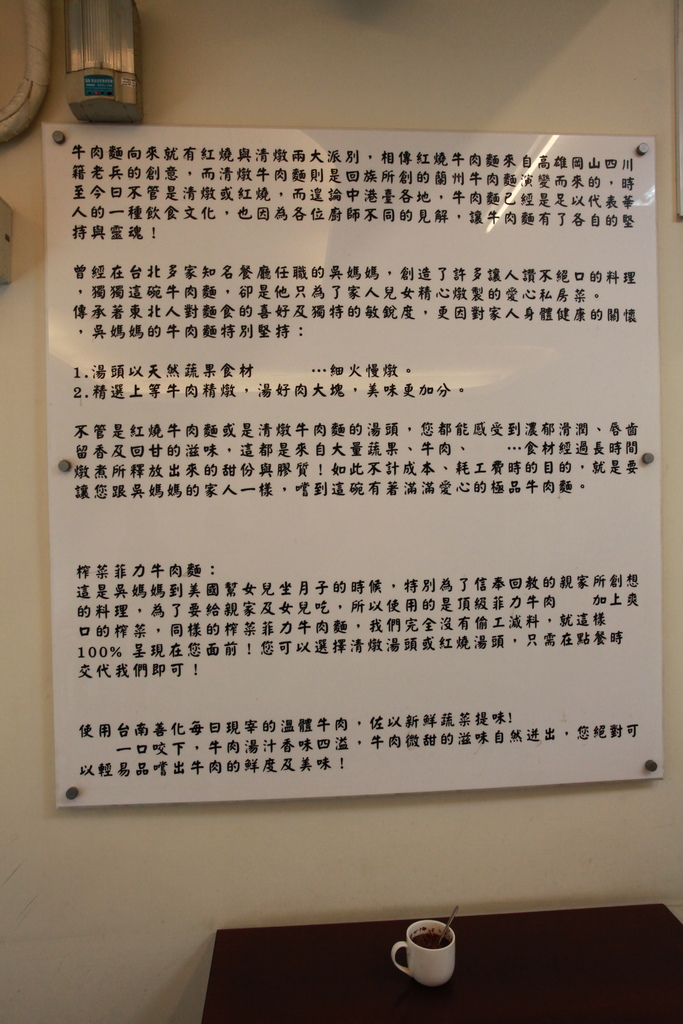 牛肉麵向來就有紅燒與清燉兩大派別，相傳紅燒牛肉麵來自高雄岡山四川
籍老兵的創意，而清燉牛肉麵則是回族所創的蘭州牛肉麵演變而來的，時
至今日不管是清燉或紅燒，而遑論中港臺各地，牛肉麵已經是足以代表華
人的一種飲食文化，也因為各位廚師不同的見解，讓牛肉麵有了各自的堅
持與靈魂！
曾經在台北多家知名餐廳任職的吳媽媽，創造了許多讓人讚不絕口的料理
，獨獨這碗牛肉麵，卻是他只為了家人兒女精心燉製的愛心私房菜。
傳承著東北人對麵食的喜好及獨特的敏銳度，更因對家人身體健康的關懷
，吳媽媽的牛肉麵特別堅持：
1.湯頭以天然蔬果食材 …細火慢燉。
2.精選上等牛肉精燉，湯好肉大塊，美味更加分。
不管是紅燒牛肉麵或是清燉牛肉麵的湯頭，您都能感受到濃郁滑潤、唇齒
留香及回甘的滋味，這都是來自大量蔬果、牛肉、 …食材經過長時間
燉煮所釋放出來的甜份與膠質！如此不計成本、耗工費時的目的，就是要
讓您跟吳媽媽的家人一樣，嚐到這碗有著滿滿愛心的極品牛肉麵。
榨菜菲力牛肉麵：
這是吳媽媽到美國幫女兒坐月子的時候，特別為了信奉回教的親家所創想
的料理，為了要給親家及女兒吃，所以使用的是頂級菲力牛肉 加上爽
口的榨菜，同樣的榨菜菲力牛肉麵，我們完全沒有偷工減料，就這樣
100% 呈現在您面前！您可以選擇清燉湯頭或紅燒湯頭，只需在點餐時
交代我們即可！
使用台南善化每日現宰的溫體牛肉，佐以新鮮蔬菜提味!
一口咬下，牛肉湯汁香味四溢，牛肉微甜的滋味自然迸出，您絕對可
以輕易品嚐出牛肉的鮮度及美味！